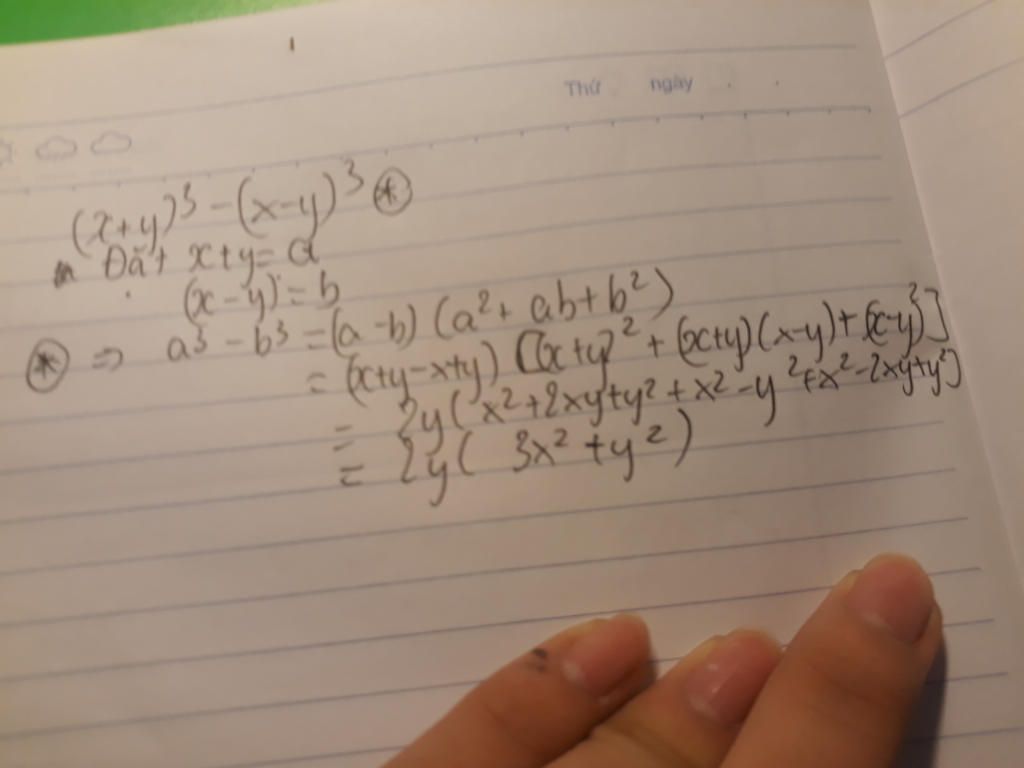 Thứ ngày
(x+y)³ - (x-y)³ ⊛
Đặt x+y = a
(x-y) = b
⊛ ⇒ a³ - b³ = (a-b)(a² + ab + b²)
= (x+y-x+y) [(x+y)² + (x+y)(x-y) + (x-y)²]
= 2y (x²+2xy+y² + x² - y² + x² - 2xy + y²)
= 2y ( 3x² + y² )